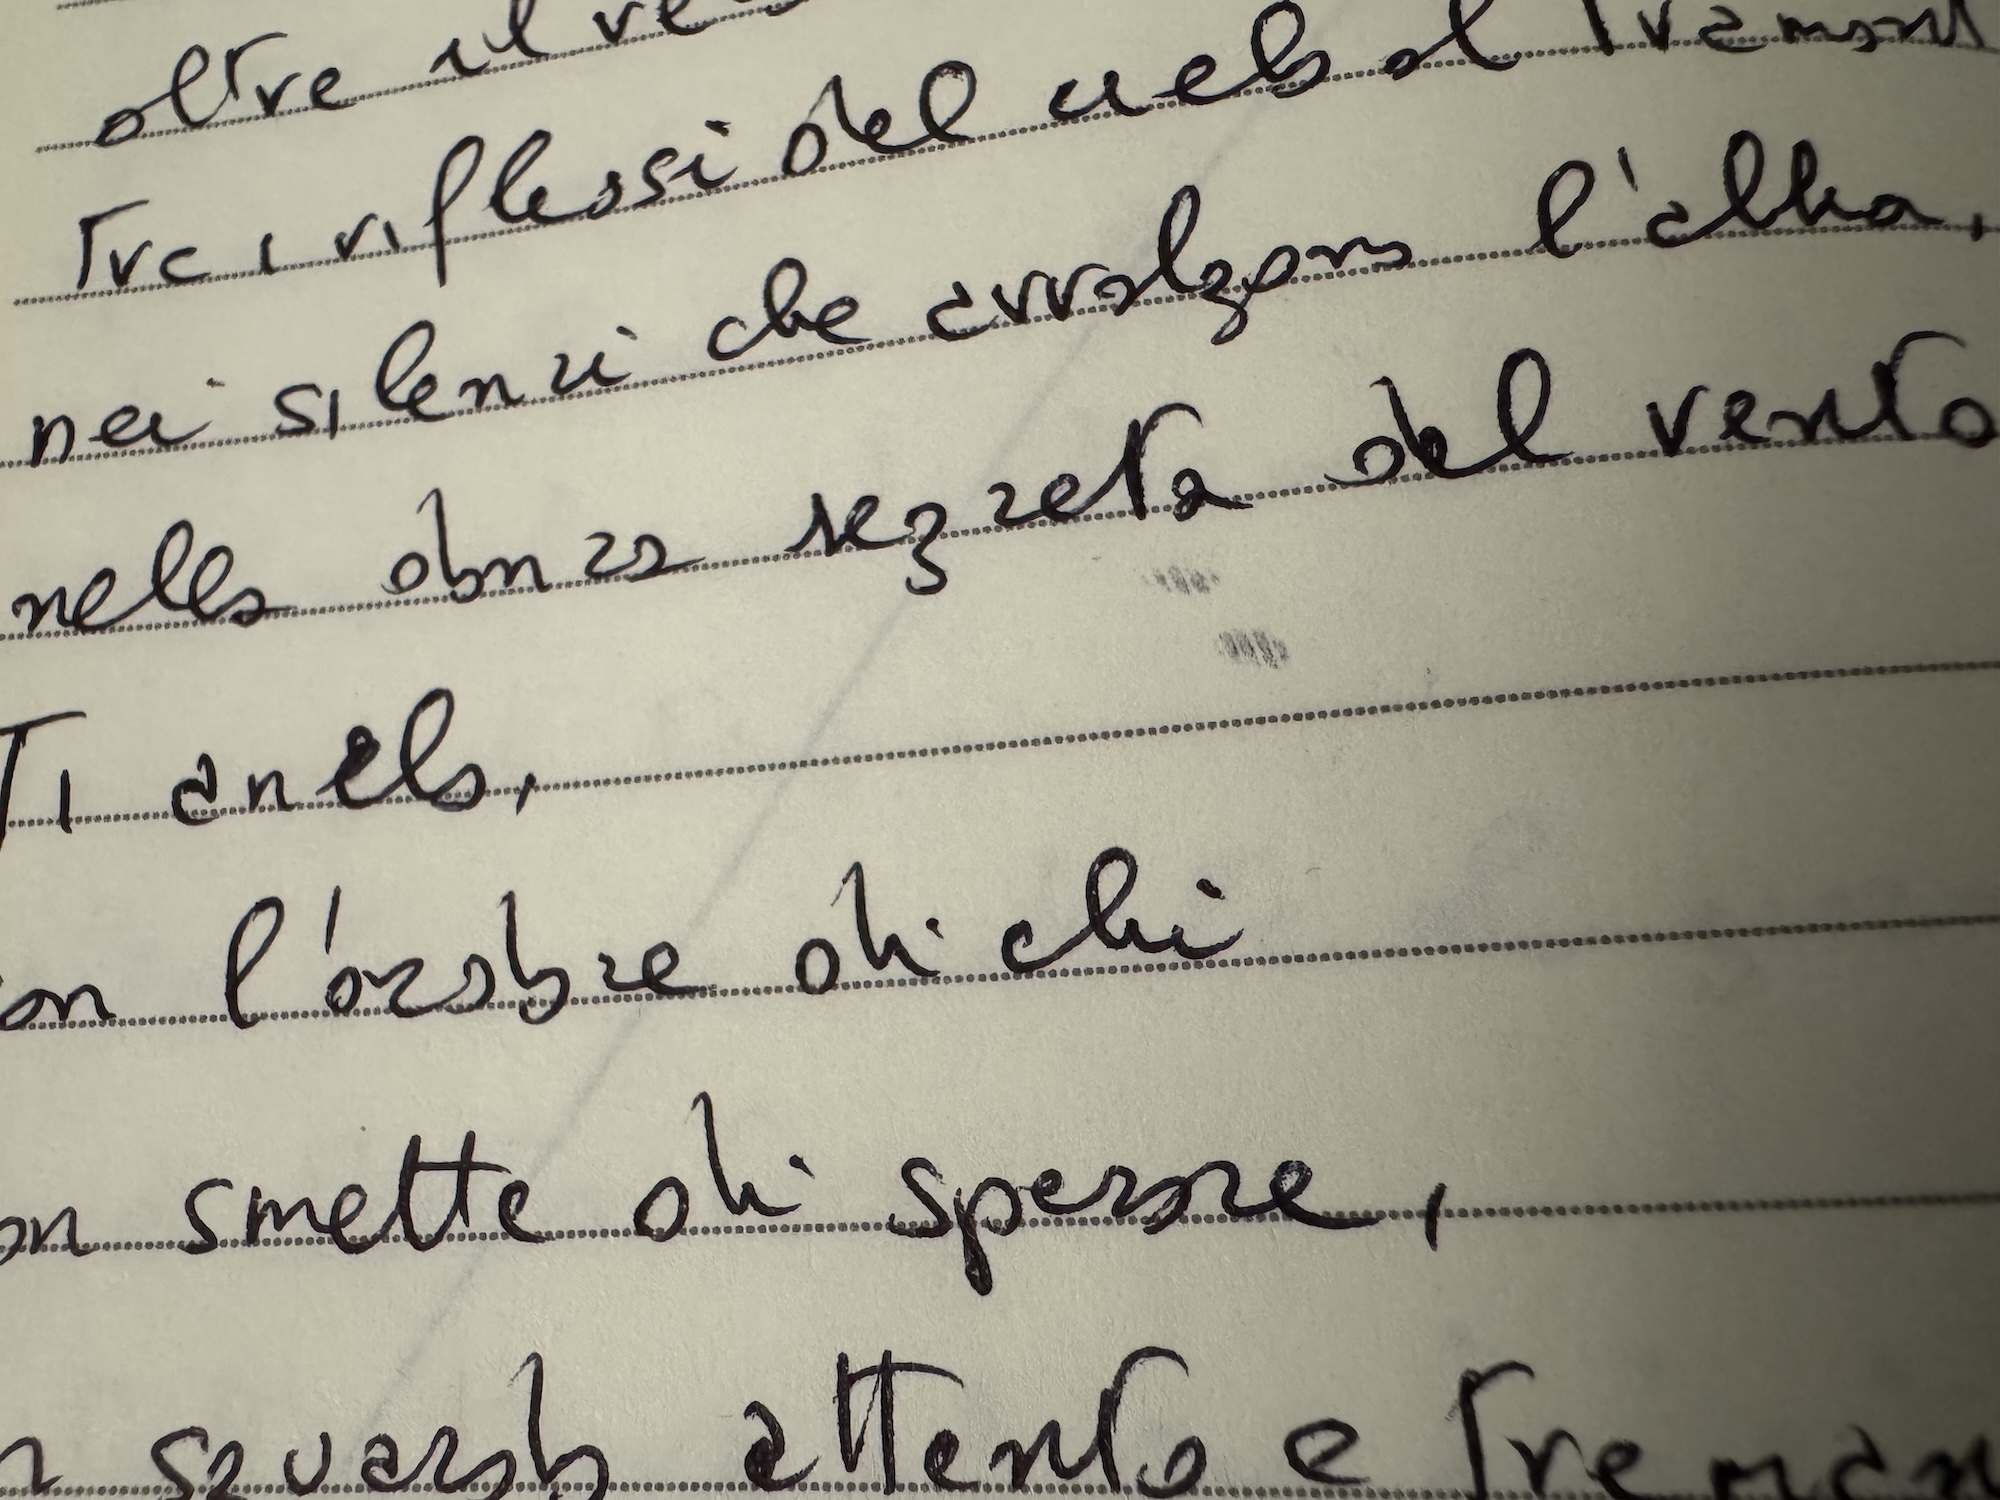 oltre il
Tra i riflessi del cielo al tramont
nei silenzi che avvolgono l'alba,
nella danza segreta del vento
Ti anelo,
on l'ardore di chi
on smette di sperare,
sguardo attento e treman